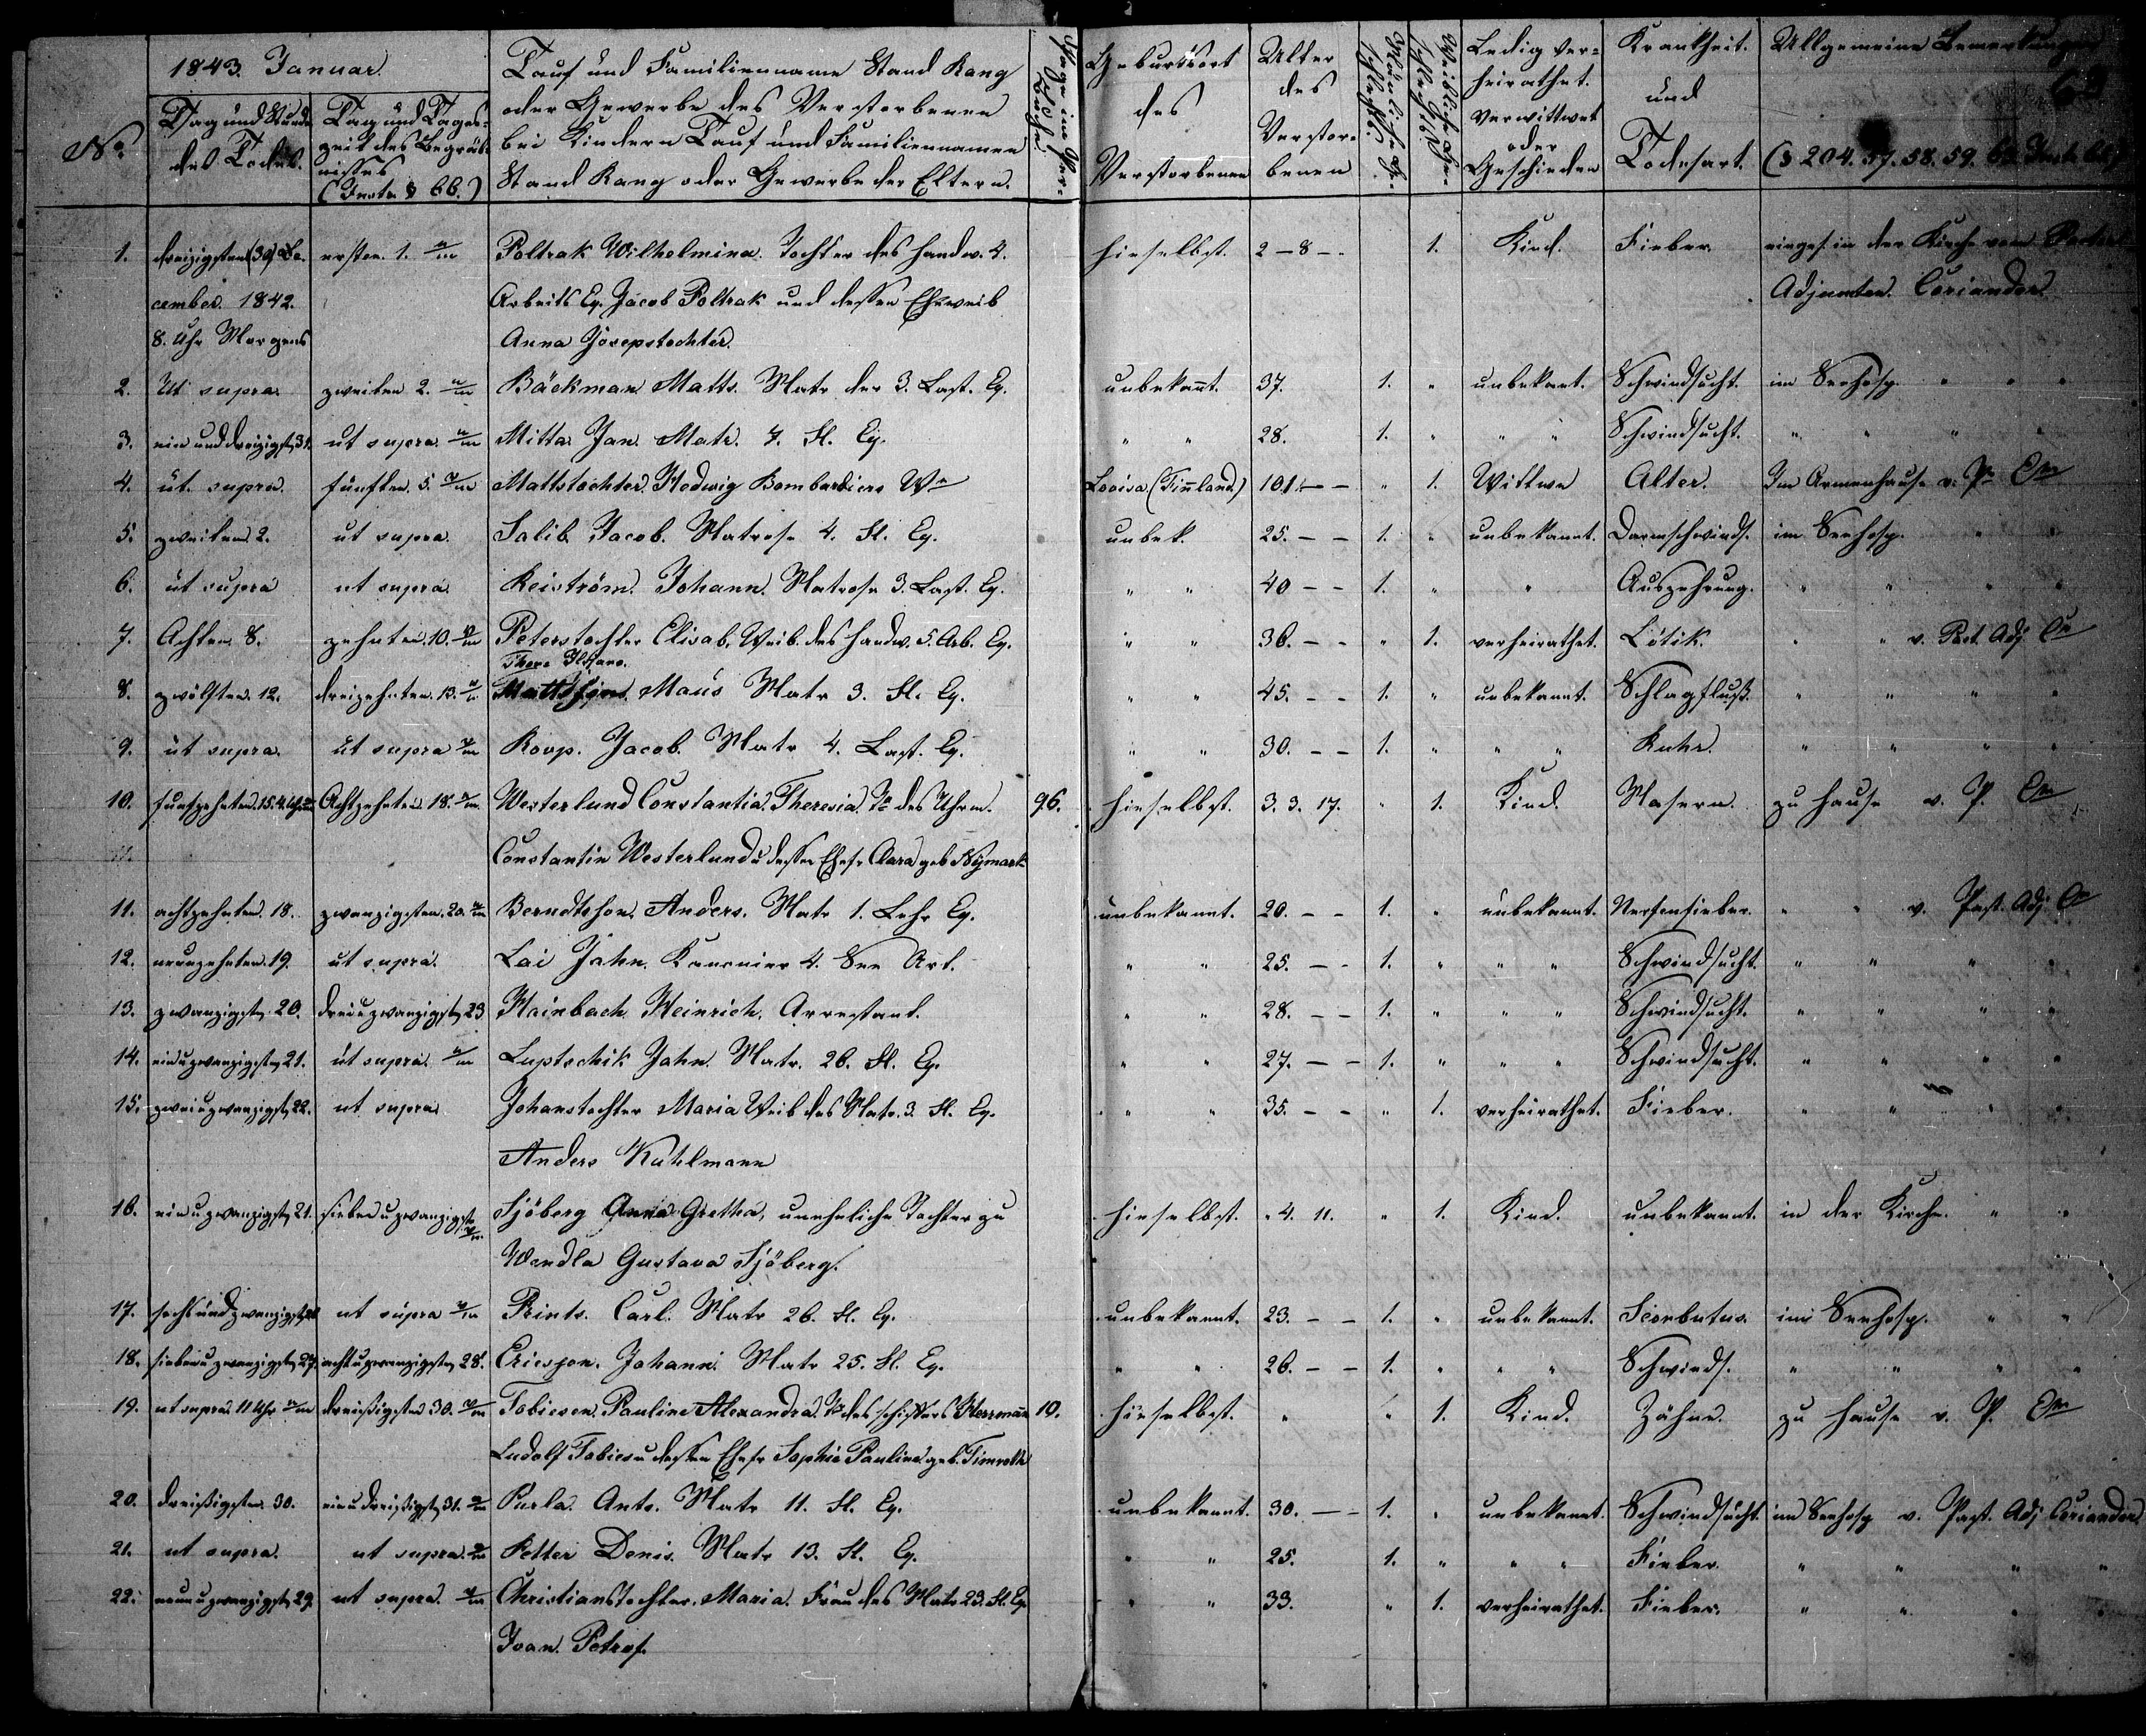 1843. Januar.
No.
Tag und Stunde des Todes.
Tag und Tageszeit des Begräbnisses (Instr. § 66.)
Tauf und Familienname Stand Rang
oder Gewerbe des Verstorbenen
bei Kindern Tauf und Familiennamen
Stand Rang oder Gewerbe der Eltern.
Geburtsort des Verstorbenen
Alter des Verstorbenen
Männliche Geschlecht.
Weibliche Geschlecht.
Ledig Verheirathet. Verwittwet oder Geschieden
Krankheit. und Todesart.
Allgemeine Bemerkungen
(§ 204. 57. 58. 59.
1. dreizigsten (30) De- ersten. 1. Poltrak Wilhelmina. Tochter des Handw. 4. hieselbst. 2 – 8 – 1. Kind. Fieber. einges. in der Kirche vom Past.
cember. 1842. Arbeits Eq. Jacob Poltrak und dessen Eheweib Adjuncten. Coriander.
8. Uhr Morgens Anna Josepstochter.
2. Ut supra. zweiten 2. Bäckman Matts. Matr der 3. Last. Eq. unbekannt. 37. 1. " unbekant. Schwindsucht. im Seehosp. " " "
3. ein und dreizigst. 31. ut supra. Mitta Jan. Matr. 4. Fl. Eq. " " 28. 1. " " " Schwindsucht. " " " "
4. ut. supra. fünften. 5. Mattstochter. Hedwig Bombardiers We Lovisa (Finnland) 101. – – " 1. Wittwe Alter. Im Armenhause v. P. Cn
5. zweiten 2. ut supra. Salib. Jacob. Matrose 4. Fl. Eq. unbek. 25. – – 1. " unbekannt. Darmschwinds. im Seehosp. " "
6. ut supra ut supra. Reiström. Johann. Matrose 3. Last. Eq. " " 40 – – 1. " " Auszehrung. " " " "
7. Achten. 8. zehnten. 10. Peterstochter Elisab. Weib des Handw. 5. Arb. Eq. " " 36. – – " 1. verheirathet. " v. Past. Adj Cn
8. zwölften. 12. dreizehnten. 13. Maus Matr 3. Fl. Eq. " " 45. – – 1. " unbekannt. Schlagfluß. " " " "
9. ut supra. ut supra Roop. Jacob. Matr 4. Last. Eq. " " 30. – – 1. " " " Ruhr. " " " "
10. funfzehnten. 15. 4. Uhr Achtzehnten. 18. Westerlund Constantia. Theresia. Tr des Uhrm. 96. hieselbst. 3. 3. 17. " 1. Kind. Masern. zu Hause v. P. Cn
Constantin Westerlund u dessen Ehefr Clara geb. Nymark
11. achtzehnten. 18. zwanzigsten. 20. Berndtsson. Anders. Matr 1. Lehr Eq. unbekannt. 20. – – 1. " unbekannt. Nervenfieber. " " v. Past. Adj Cn
12. neunzehnten. 19. ut supra. Lai Jahn. Kanonier 4. See Art. " " 25. – – 1. " " " Schwindsucht. " " " "
13. zwanzigsten. 20. drei u zwanzigst. 23 Hainbach. Heinrich. Arrestant. " " 28. – – 1. " " " Schwindsucht. " " " "
14. ein u zwanzigsten 21. ut supra. Luptschik Jahn. Matr. 26. Fl. Eq. " " 27. – – 1. " " " Schwindsucht. " " " "
15. zwei u zwanzigst. 22. ut supra. Johanstochter Maria Weib des Matr. 3. Fl. Eq. " " 35. – – " 1. verheirathet. Fieber. " " " "
Anders Kuhlmann
16. ein u zwanzigst. 21. sieben u zwanzigste Sjöberg Anna Gretha, uneheliche Tochter zu hieselbst. " 4. 11. " 1. Kind. unbekannt. in der Kirche. " "
Wendla Gustava Sjöberg.
17. sechs und zwanzigst. 26 ut supra Prints. Carl. Matr 26. Fl. Eq. unbekannt. 23. – – 1. " unbekannt. Scorbutus. im Seehosp. " "
18. sieben u zwanzigsten 27. acht u zwanzigsten 28. Ericsson. Johann. Matr 25. Fl. Eq. " " 26. – – 1. " " " Schwinds. " " " "
19. ut supra. 11 Uhr dreißigsten 30. Tobiesen. Pauline Alexandra. Tr des Schiffers Herrmann 10. hieselbst. " " 1. Kind. Zähne. zu Hause v. P. Cn
Ludolf Tobiesen dessen Ehefr Sophie Pauline geb. Timroth
20. dreißigsten. 30. ein u dreißigst. 31. Purla. Ants. Matr 11. Fl. Eq. unbekannt. 30. – – 1. " unbekannt. Schwindsucht. im Seehosp v. Past. Adj Coriander
21. ut supra. ut supra. Petter Denis. Matr 13. Fl. Eq. " " 25. 1. " " " Fieber. " " " "
22. neun u zwanzigst. 29. ut supra. Christianstochter. Maria. Frau des Matr 23. Fl. Eq " " 33. " 1. verheirathet. Fieber. " " " "
Ivan. Petrof.